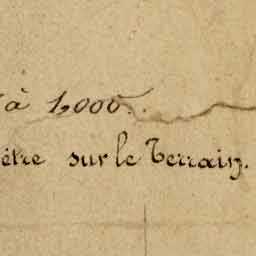 à 1,000.
ètre sur le Terrain.